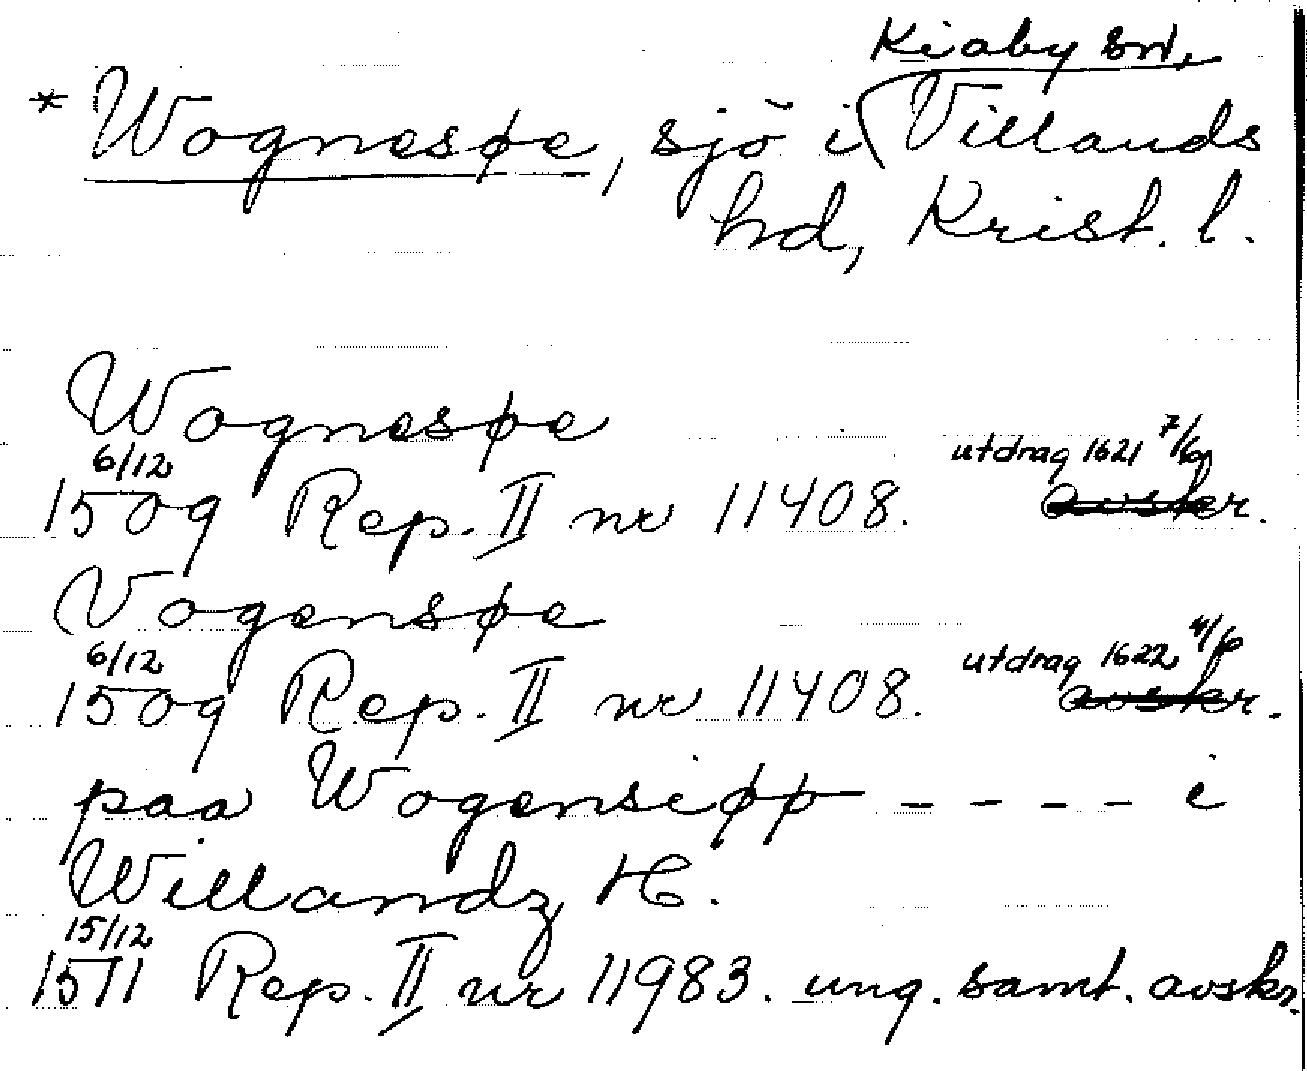 Kiaby sn,
* Wognesøe, sjö i Villands
hd, Krist. l.
Wognesøe
6/12 utdrag 1621 7/6
1509 Rep. II nr 11408. avskr.
Vogensøe
6/12 utdrag 1622 4/6
1509 Rep. II nr 11408. avskr.
paa Wogensiøø - - - - i
Willandz H.
15/12
1511 Rep. II nr 11983. ung. samt. avskr.